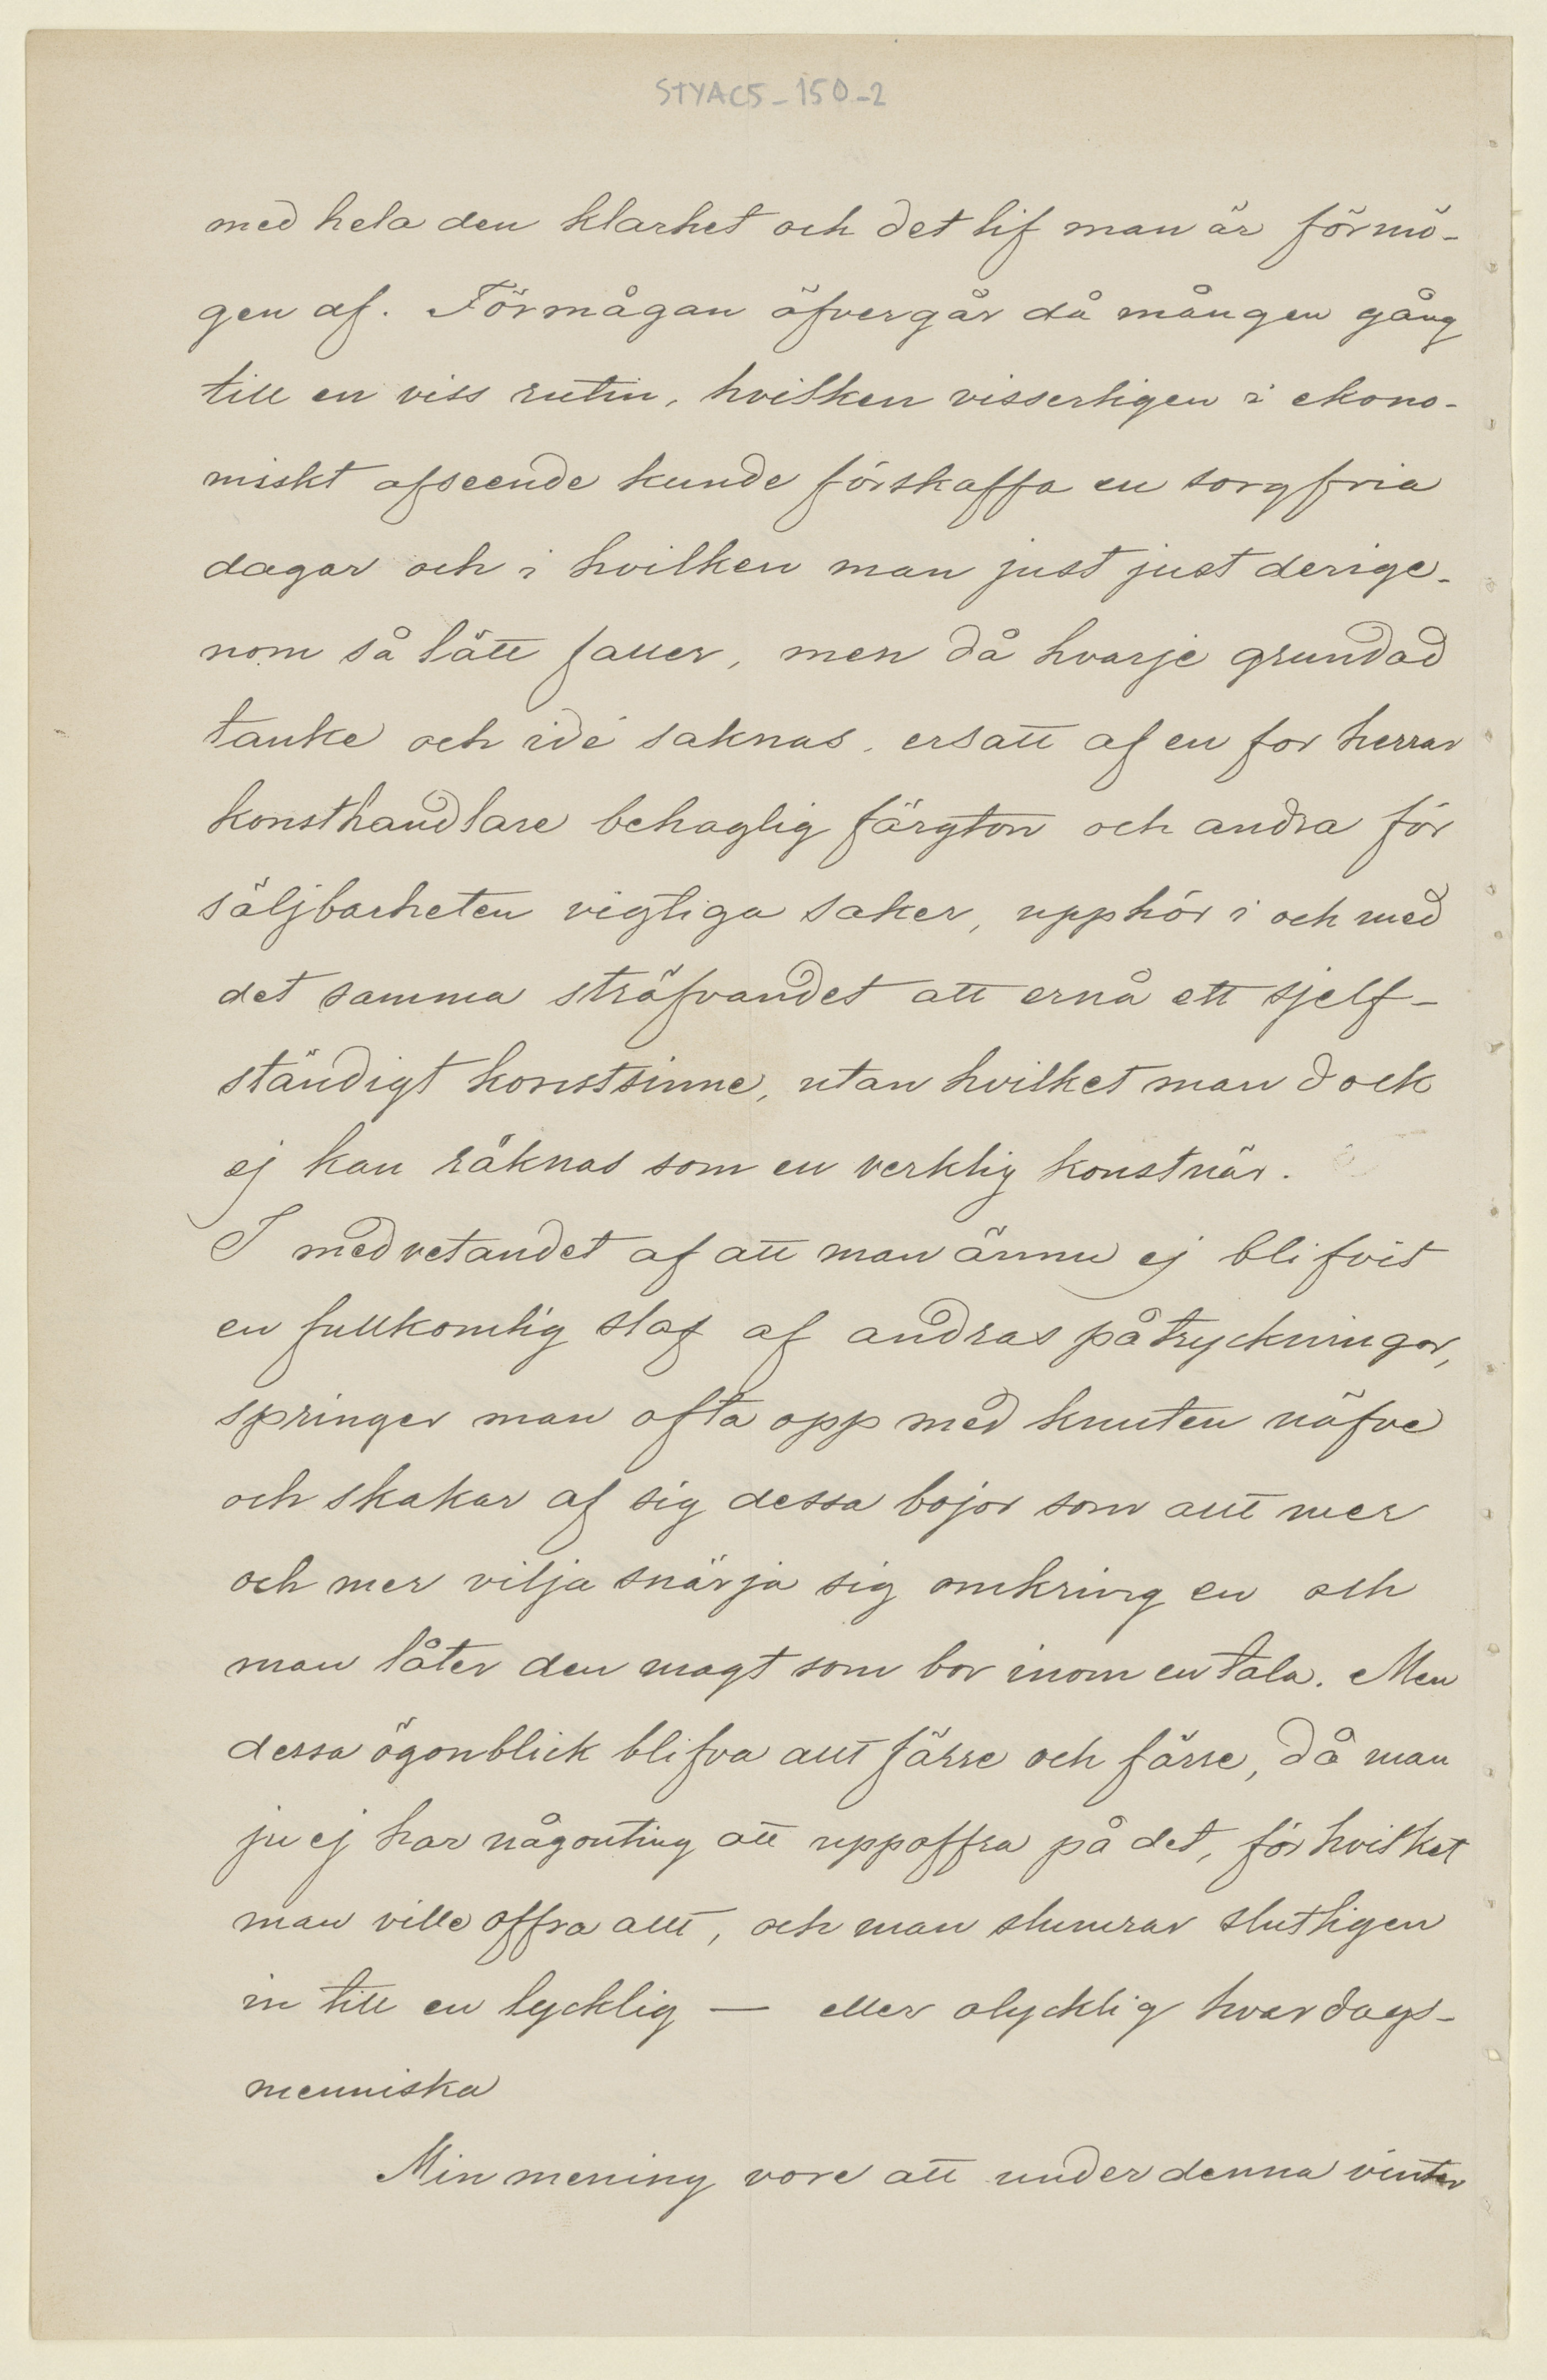 STYAC5_150_2
med hela den klarhet och det lif man är förmö-
gen af. Förmågan öfvergår då mången gång
till en viss rutin, hvilken visserligen i ekono-
miskt afseende kunde förskaffa en sorgfria
dagar och i hvilken man just just derige-
nom så lätt faller, men då hvarje grundad
tanke och idé saknas, ersatt af en for herrar
konsthandlare behaglig färgton och andra för
säljbarheten vigtiga saker, upphör i och med
det samma sträfvandet att ernå ett sjelf-
ständigt konstsinne, utan hvilket man dock
ej kan räknas som en verklig konstnär.
I medvetandet af att man ännu ej blifvit
en fullkomlig slaf af andras påtryckningar,
springer man ofta opp med knuten näfve
och skakar af sig dessa bojor som allt mer
och mer vilja snärja sig omkring en och
man låter den magt som bor inom en tala. Men
dessa ögonblick blifva allt färre och färre, då man
ju ej har någonting att uppoffra på det, för hvilket
man ville offra allt, och man slumrar slutligen
in till en lycklig — eller olycklig hvardags-
menniska
Min mening vore att under denna vinter